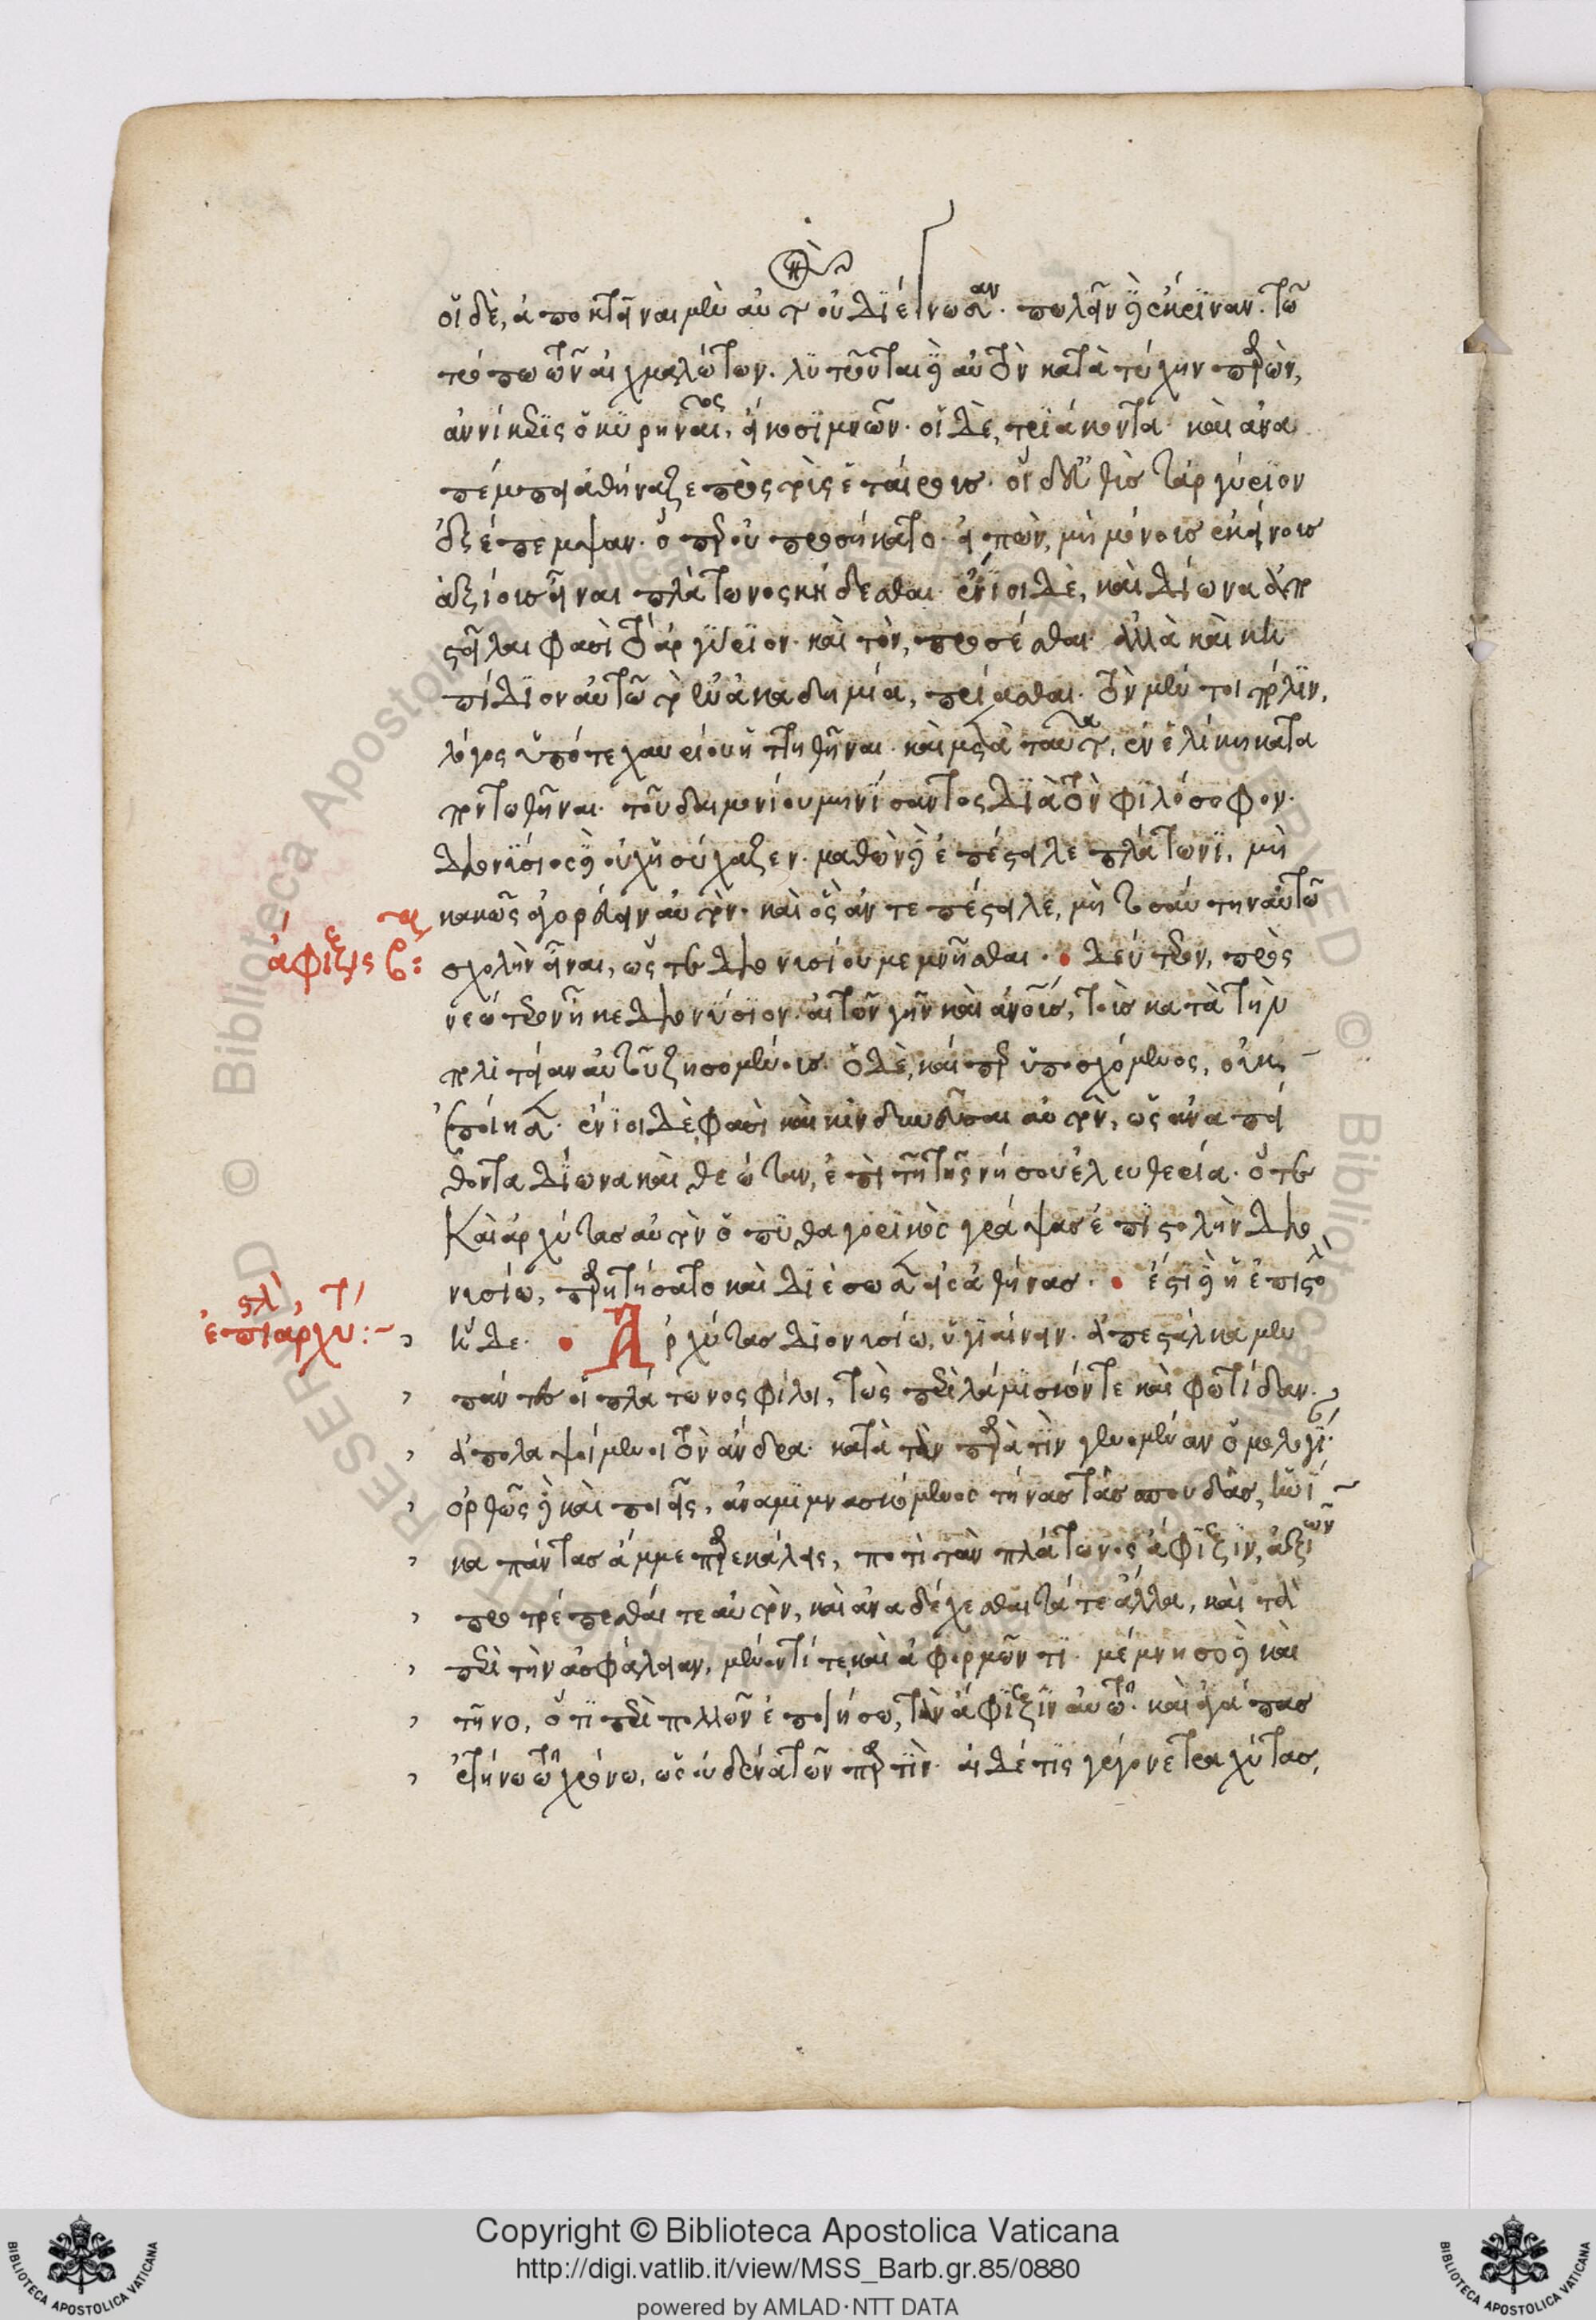 πλ
οἱ δὲ, ἀποκτεῖναι μὲν αὐτὸν οὐ διέγνωσαν. πωλεῖν δὲ ἔκριναν. τῶ
τρόπω τῶν αἰχμαλώτων. λυτροῦται δὲ αὐτὸν κατὰ τύχην παρὼν,
ἀννίκερις ὁ κυρηναῖος, εἴκοσι μνῶν. οἱ δὲ, τριάκοντα. καὶ ἀνα
πέμπει ἀθήναζε πρὸς τοὺς ἑταίρους. οἱ δ' εὐθὺς τἀργύριον
ἐξέπεμψαν. ὅπερ οὐ προσήκατο. εἰπὼν, μὴ μόνοις ἐκείνοις
ἀξίοις εἶναι πλάτωνος κήδεσθαι. ἔνιοι δὲ, καὶ δίωνα ἀπο
στεῖλαι φασὶ τὸ ἀργύριον. καὶ τὸν, προσέσθαι. ἀλλὰ καὶ κη
πίδιον αὐτῶ τὸ ἐν ἀκαδημία, πρίασθαι. τὸν μέντοι πόλιν,
λόγος ὑπό τε χαυρίου ἡττηθῆναι. καὶ μετὰ ταῦτα, ἐν ἑλίκη κατα
ποντωθῆναι. τοῦ δαιμονίου μηνίσαντος διὰ τὸν φιλόσοφον.
διονύσιος δὲ οὐχ ἡσύχαζεν. μαθὼν δὲ ἐπέστειλε πλάτωνι, μὴ
κακῶς ἀγορεύειν αὐτόν. καὶ ὃς ἀντεπέστειλε, μὴ τοσαύτην αὐτῶ
ἄφιξις β:
σχολὴν εἶναι, ὥστε διονυσίου μεμνῆσθαι. δεύτερον, πρὸς
νεώτερον ἧκε διονύσιον. αἰτῶν γῆν καὶ ἀνθρώπους, τοὺς κατὰ τὴν
πολιτείαν αὐτοῦ ζησομένους. ὁ δὲ, καίπερ ὑποσχόμενος, οὐκ
ἐποίησεν. ἔνιοι δὲ φασὶ καὶ κινδυνεῦσαι αὐτὸν, ὡς ἀναπεί
θοντα δίωνα καὶ θεώταν, ἐπὶ τῆ τῆς νήσου ἐλευθερία. ὅτε
καὶ ἀρχύτας αὐτὸν ὁ πυθαγορικὸς γράψας ἐπιστολὴν διο
νυσίω, παρητήσατο καὶ διέσωσεν εἰς ἀθήνας. ἔστι δὲ ἡ ἐπιστολὴ
ἐπιστολὴ ἀρχύτ:
ἥδε. Ἀρχύτας διονυσίω, ὑγιαίνειν. ἀπεστάλκαμεν
πάντες οἱ πλάτωνος φίλοι, τὼς περὶ λαμίσκόν τε καὶ φωτίδαν.
ἀπολαψοίμενοι τὸν ἄνδρα. κατὰ τὰν παρὰ τὶν γενομέναν ὁμολογί.
ὀρθῶς δὲ καὶ ποιεῖς, ἀναμιμνασκόμενος τήνας τᾶς σπουδᾶς, ἡνί
κα πάντας ἄμμε παρεκάλεις, ποτὶ τὰν πλάτωνος ἄφιξιν, ἀξιῶν
προτρέπεσθαί τε αὐτὸν, καὶ ἀναδέχεσθαι τά τε ἄλλα, καὶ τὰ
περὶ τὴν ἀσφάλειαν, μένοντί τε καὶ ἀφορμῶντι. μέμνησο δὲ καὶ
τῆνο, ὅτι περὶ πολλῶν ἐποιήσω, τὰν ἄφιξιν αὐτοῦ. καὶ ἀγάπας
ἐκ τήνω τῶ χρόνω, ὡς οὐδένα τῶν παρὰ τίν. αἰ δέ τις γέγονε τραχύτας,
Copyright © Biblioteca Apostolica Vaticana
http://digi.vatlib.it/view/MSS_Barb.gr.85/0880
powered by AMLAD·NTT DATA